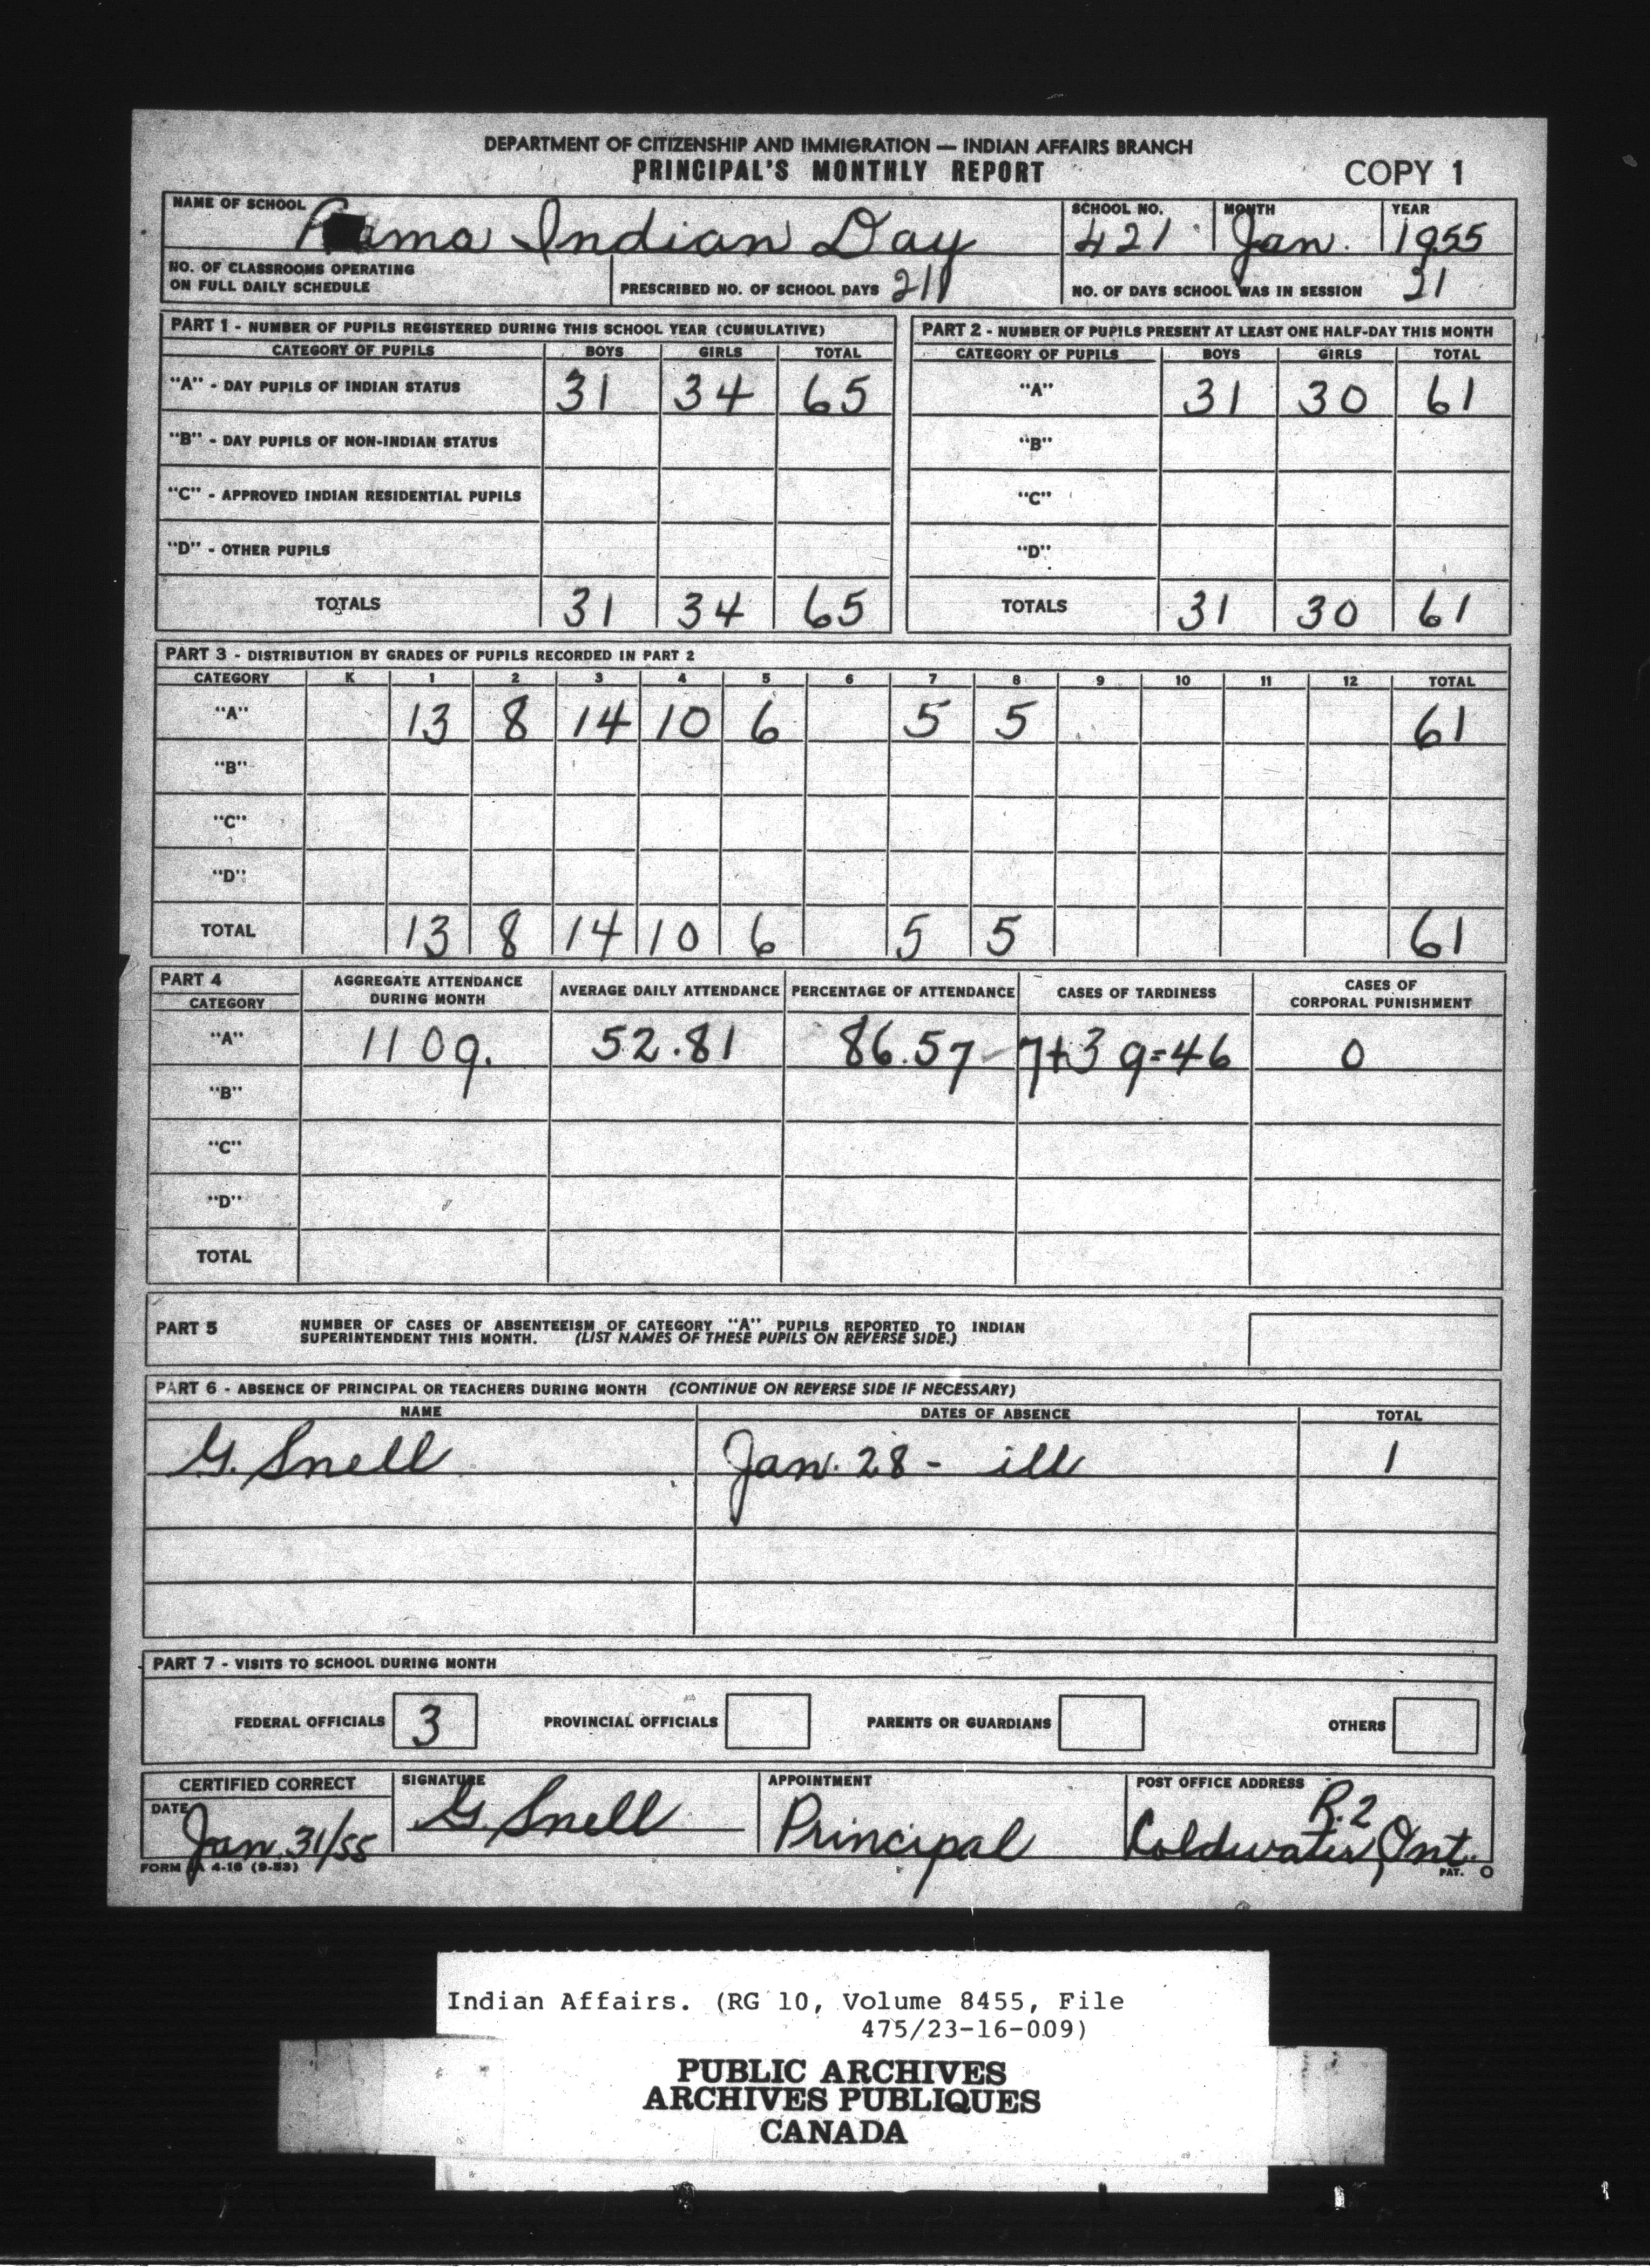 DEPARTMENT OF CITIZENSHIP AND IMMIGRATION — INDIAN AFFAIRS BRANCH
PRINCIPAL'S MONTHLY REPORT COPY 1
NAME OF SCHOOL Rama Indian Day SCHOOL NO. 421 MONTH Jan. YEAR 1955
NO. OF CLASSROOMS OPERATING
ON FULL DAILY SCHEDULE PRESCRIBED NO. OF SCHOOL DAYS NO. OF DAYS SCHOOL WAS IN SESSION 21
PART 1 - NUMBER OF PUPILS REGISTERED DURING THIS SCHOOL YEAR (CUMULATIVE)
CATEGORY OF PUPILS BOYS GIRLS TOTAL
"A" - DAY PUPILS OF INDIAN STATUS 31 34 65
"B" - DAY PUPILS OF NON-INDIAN STATUS
"C" - APPROVED INDIAN RESIDENTIAL PUPILS
"D" - OTHER PUPILS
TOTALS 31 34 65
PART 2 - NUMBER OF PUPILS PRESENT AT LEAST ONE HALF-DAY THIS MONTH
CATEGORY OF PUPILS BOYS GIRLS TOTAL
"A" 31 30 61
"B"
"C"
"D"
TOTALS 31 30 61
PART 3 - DISTRIBUTION BY GRADES OF PUPILS RECORDED IN PART 2
CATEGORY K 1 2 3 4 5 6 7 8 9 10 11 12 TOTAL
"A" 13 8 14 10 6 5 5 61
"B"
"C"
"D"
TOTAL 13 8 14 10 6 5 5 61
PART 4
CATEGORY AGGREGATE ATTENDANCE DURING MONTH AVERAGE DAILY ATTENDANCE PERCENTAGE OF ATTENDANCE CASES OF TARDINESS CASES OF CORPORAL PUNISHMENT
"A" 1109. 52.81 86.57 7+39=46 0
"B"
"C"
"D"
TOTAL
PART 5 NUMBER OF CASES OF ABSENTEEISM OF CATEGORY "A" PUPILS REPORTED TO INDIAN
SUPERINTENDENT THIS MONTH. (LIST NAMES OF THESE PUPILS ON REVERSE SIDE.)
PART 6 - ABSENCE OF PRINCIPAL OR TEACHERS DURING MONTH (CONTINUE ON REVERSE SIDE IF NECESSARY)
NAME DATES OF ABSENCE TOTAL
G. Snell Jan. 28 - ill 1
PART 7 - VISITS TO SCHOOL DURING MONTH
FEDERAL OFFICIALS 3 PROVINCIAL OFFICIALS PARENTS OR GUARDIANS OTHERS
CERTIFIED CORRECT SIGNATURE APPOINTMENT POST OFFICE ADDRESS R.2
DATE Jan. 31/55 G. Snell Principal Coldwater, Ont.
FORM 4-16 (9-53) PAT. O
Indian Affairs. (RG 10, Volume 8455, File
475/23-16-009)
PUBLIC ARCHIVES
ARCHIVES PUBLIQUES
CANADA